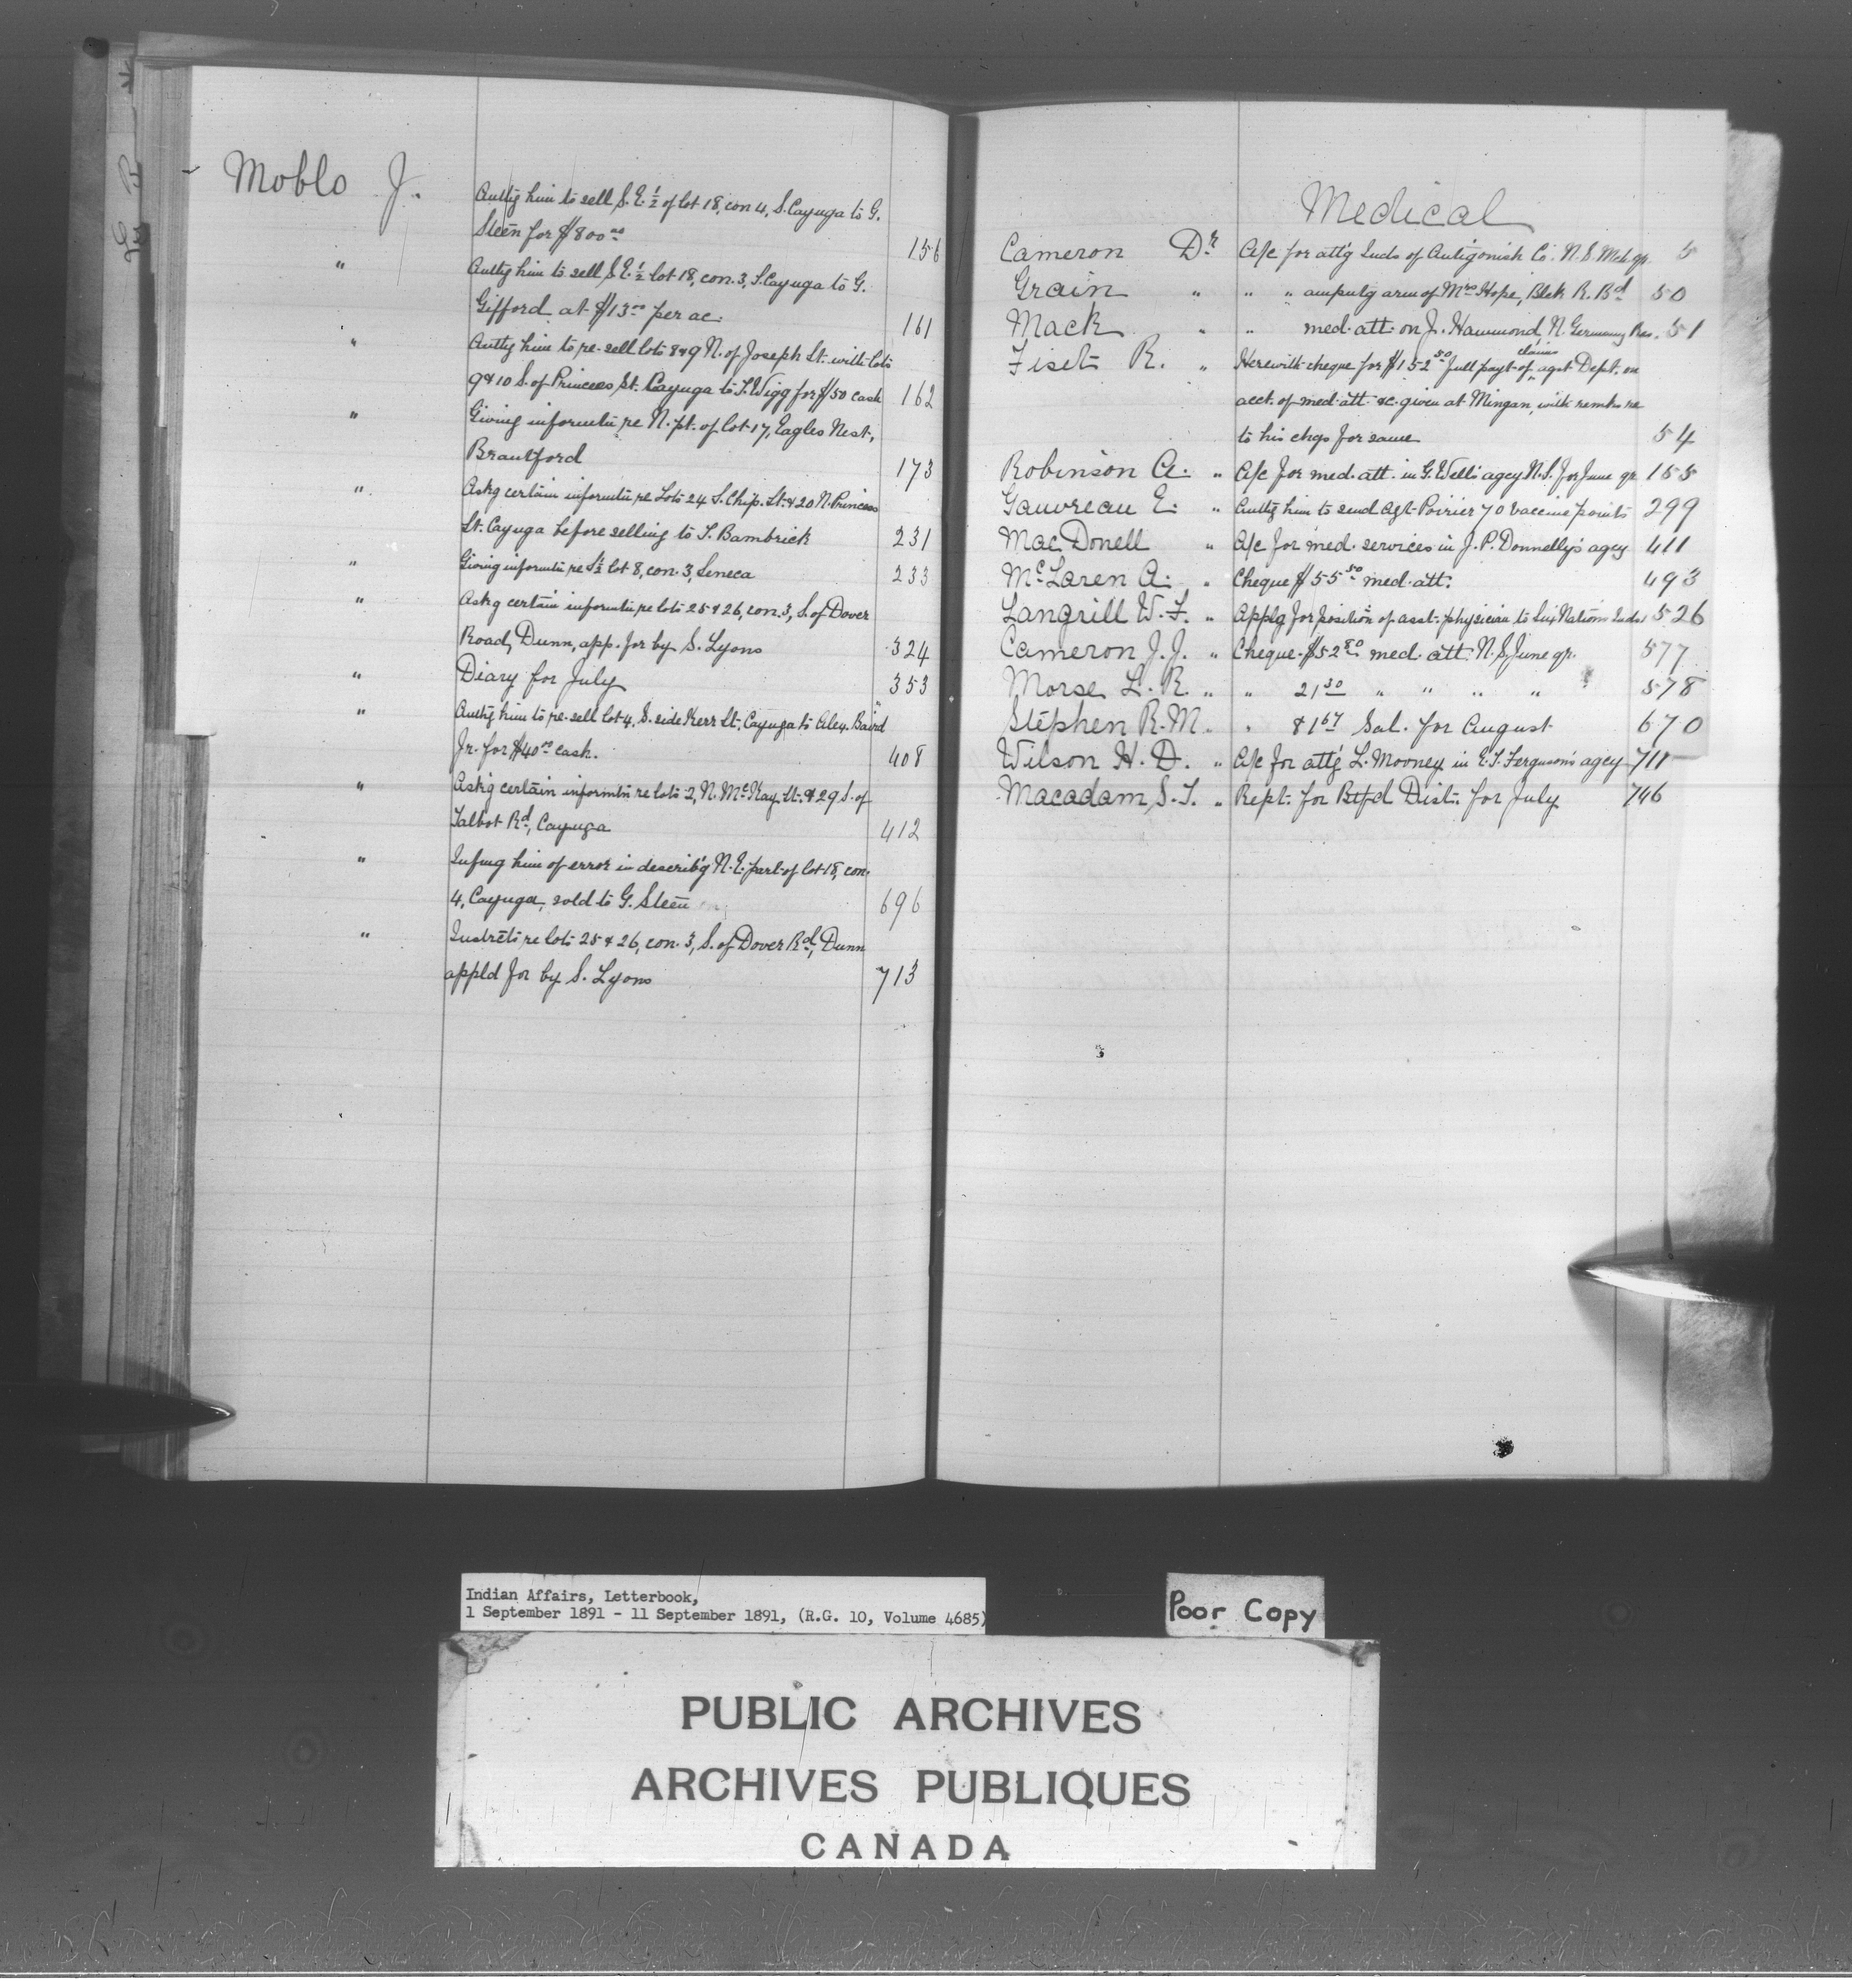 Moblo J.
Authg him to sell S.E. ½ of lot 18, con 4, S. Cayuga to G.
Steen for $800.00 156
" Authg him to sell S.E. ½ lot 18, con. 3, S. Cayuga to G.
Gifford at $13.00 per ac. 161
" Authg him to re-sell lots 8 & 9 N. of Joseph St. with lots
9 & 10 S. of Princess St. Cayuga to T. Wigg for $50 cash 162
" Giving informtn re N. pt. of lot 17, Eagles Nest,
Brantford 173
" Askg certain informtn re Lots 24 S. Chip. St. & 20 N. Princess
St. Cayuga before selling to T. Bambrick 231
" Giving informtn re S ½ lot 8, con. 3, Seneca 233
" Askg certain informtn re lots 25 & 26, con. 3, S. of Dover
Road, Dunn, app. for by S. Lyons 324
" Diary for July 353
" Authg him to re-sell lot 4, S. side Kerr St., Cayuga to Alex. Baird
Jr. for $40.00 cash. 408
" Askg certain informtn re lots 2, N. McKay St. & 29 S. of
Talbot Rd, Cayuga 412
" Infmg him of error in describ'g N.E. part of lot 18, con.
4, Cayuga, sold to G. Steen 696
" Instrcts re lots 25 & 26, con. 3, S. of Dover Rd, Dunn
appld for by S. Lyons 713
Medical
Cameron Dr A/c for att'g Inds of Antigonish Co. N.S. Mch qr. 5
Grain " " " amputg arm of Mrs Hope, Blck R. Bd 50
Mack " " med. att. on J. Hammond, N. Germany Res. 51
Fiset R. " Herewith cheque for $152.50 full payt of claims agst Dept. on
acct. of med. att. &c. given at Mingan, with remks re
to his chgs for same 54
Robinson A. " A/c for med. att. in G. Wells agcy N.S. for June qr 155
Gauvreau E. " Authg him to send Agt. Poirier 70 vaccine points 299
MacDonell " A/c for med. services in J.P. Donnelly's agcy 411
McLaren A. " Cheque $55.50 med. att. 493
Langrill W.F. " Applg for position of asst. physician to Six Nations Inds 526
Cameron J.J. " Cheque $52.80 med. att. N.S. June qr. 577
Morse L.R. " " 21.30 " " " " 578
Stephen R.M. " 81.67 Sal. for August 670
Wilson H.D. " A/c for att'g L. Mooney in E.T. Ferguson's agcy 711
Macadam S.T. " Rept. for Btfd Dist. for July 746
Indian Affairs, Letterbook,
1 September 1891 - 11 September 1891, (R.G. 10, Volume 4685)
Poor Copy
PUBLIC ARCHIVES
ARCHIVES PUBLIQUES
CANADA